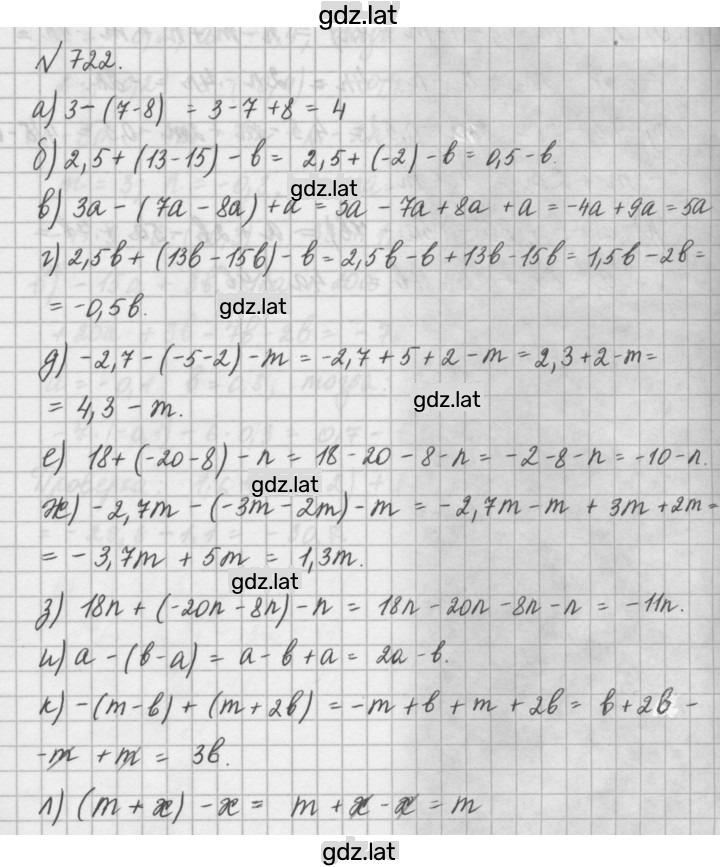 gdz.lat
№ 722.
а) 3-(7-8) = 3-7+8 = 4
б) 2,5+(13-15)-в = 2,5+(-2)-в = 0,5-в.
gdz.lat
в) 3а-(7а-8а)+а = 3а-7а+8а+а = -4а+9а = 5а
г) 2,5в+(13в-15в)-в = 2,5в-в+13в-15в = 1,5в-2в =
= -0,5в.
gdz.lat
д) -2,7-(-5-2)-m = -2,7+5+2-m = 2,3+2-m =
= 4,3-m.
gdz.lat
е) 18+(-20-8)-n = 18-20-8-n = -2-8-n = -10-n.
gdz.lat
ж) -2,7m-(-3m-2m)-m = -2,7m-m+3m+2m =
= -3,7m+5m = 1,3m.
gdz.lat
з) 18n+(-20n-8n)-n = 18n-20n-8n-n = -11n.
и) а-(в-а) = а-в+а = 2а-в.
к) -(m-в)+(m+2в) = -m+в+m+2в = в+2в-
-m+m = 3в.
л) (m+x)-x = m+x-x = m
gdz.lat